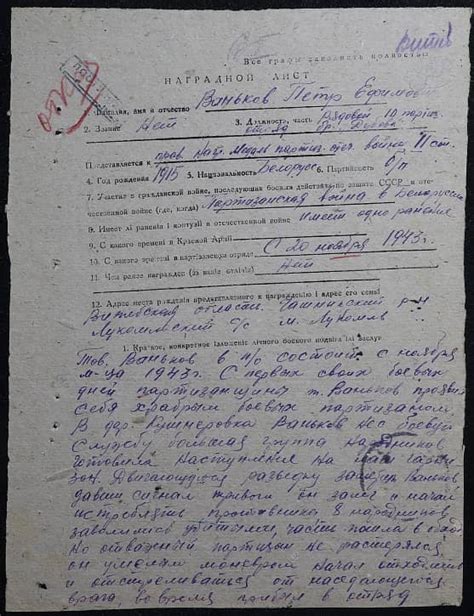 Все графы заполнять полностью
НАГРАДНОЙ ЛИСТ
1. Фамилия, имя и отчество Ваньков Петр Ефимович
2. Звание Нет 3. Должность, часть Рядовой 10 партиз.
отряд бр.
Представляется к прав. наг. Медаль партиз. отеч. война II ст.
4. Год рождения 1915 5. Национальность Белорус 6. Партийность б/п
7. Участие в гражданской войне, последующих боевых действиях по защите СССР и оте-
чественной войне (где, когда) Партизанская война в Белоруссии
8. Имеет ли ранения и контузии в отечественной войне имеет одно ранение
9. С какого времени в Красной Армии
10. С какого времени в партизанском отряде С 20 ноября 1943 г.
11. Чем ранее награжден (за какие отличия) Нет
12. Адрес места рождения представляемого к награждению и адрес его семьи
Витебская область Чашникский р-н
Лукомльский с/с м. Лукомль
1. Краткое, конкретное изложение личного боевого подвига или заслуг
Тов. Ваньков в п/о состоит с ноября
м-ца 1943 г. С первых своих боевых
дней партизанщины т. Ваньков проявил
себя храбрым боевым партизаном.
В дер. Кушнеровка Ваньков нес боевую
службу большая группа
готовила наступление на наш гарни-
зон. Двигающуюся разведку заметил Ваньков
давши сигнал тревоги он залег и начал
истреблять противника 8
завалился убитыми, часть пошла в обход
но отважный партизан не растерялся,
он умелым маневром начал отходить
и отстреливаться от наседающего
врага, во время прибыл в отряд